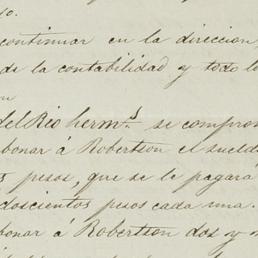 so.
continuar en la direccion,
de la contabilidad y todo l
on
del Rio herm.s se compro
bonar á Robertson el sueld
s pesos, que se le pagará
doscientos pesos cada una.
bonar á Robertson dos y m